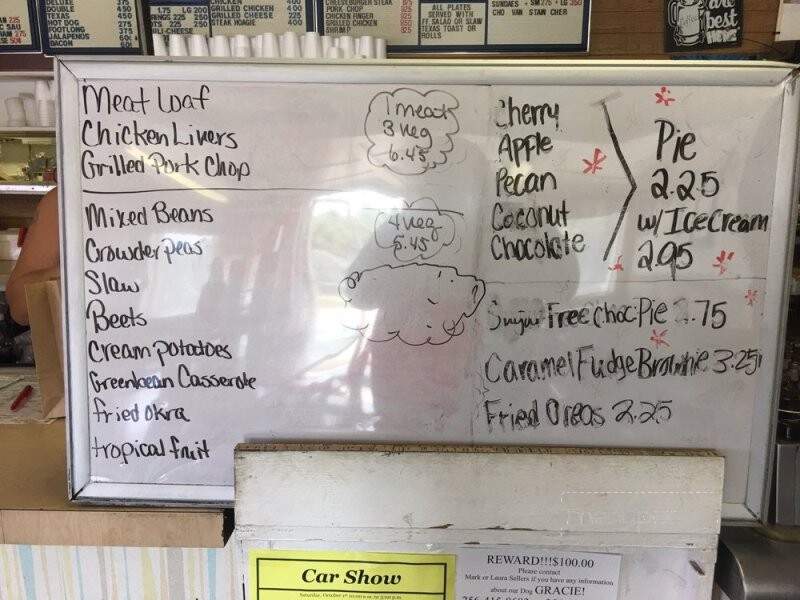 DELUXE 375
DOUBLE 450
TEXAS 450
HOT DOG 275
FOOTLONG
JALAPENOS
BACON
1.75 LG 200
WINGS 225 250
225 250
CHICKEN 400
GRILLED CHICKEN 450
GRILLED CHEESE 225
STEAK HOAGIE 400
CHEESEBURGER STEAK
PORK CHOP
CHICKEN FINGER
GRILLED CHICKEN
SHRIMP
ALL PLATES
SERVED WITH
FF, SALAD OR SLAW
TEXAS TOAST OR
ROLLS
SUNDAES
CHO VAN STAN CHER
are
best
Meat Loaf
Chicken Livers
Grilled Pork Chop
1 meat
3 veg
6.45
Mixed Beans
Crowder peas
Slaw
Beets
Cream potatoes
Greenbean Casserole
fried okra
tropical fruit
4 veg
5.45
Cherry
Apple
Pecan
Coconut
Chocolate
Pie
2.25
w/ Ice Cream
2.95
Sugar Free Choc Pie 2.75
Caramel Fudge Brownie 3.25
Fried Oreos 2.25
Car Show
REWARD!!!$100.00
Please contact
Mark or Laura Sellers if you have any information
about our Dog GRACIE!